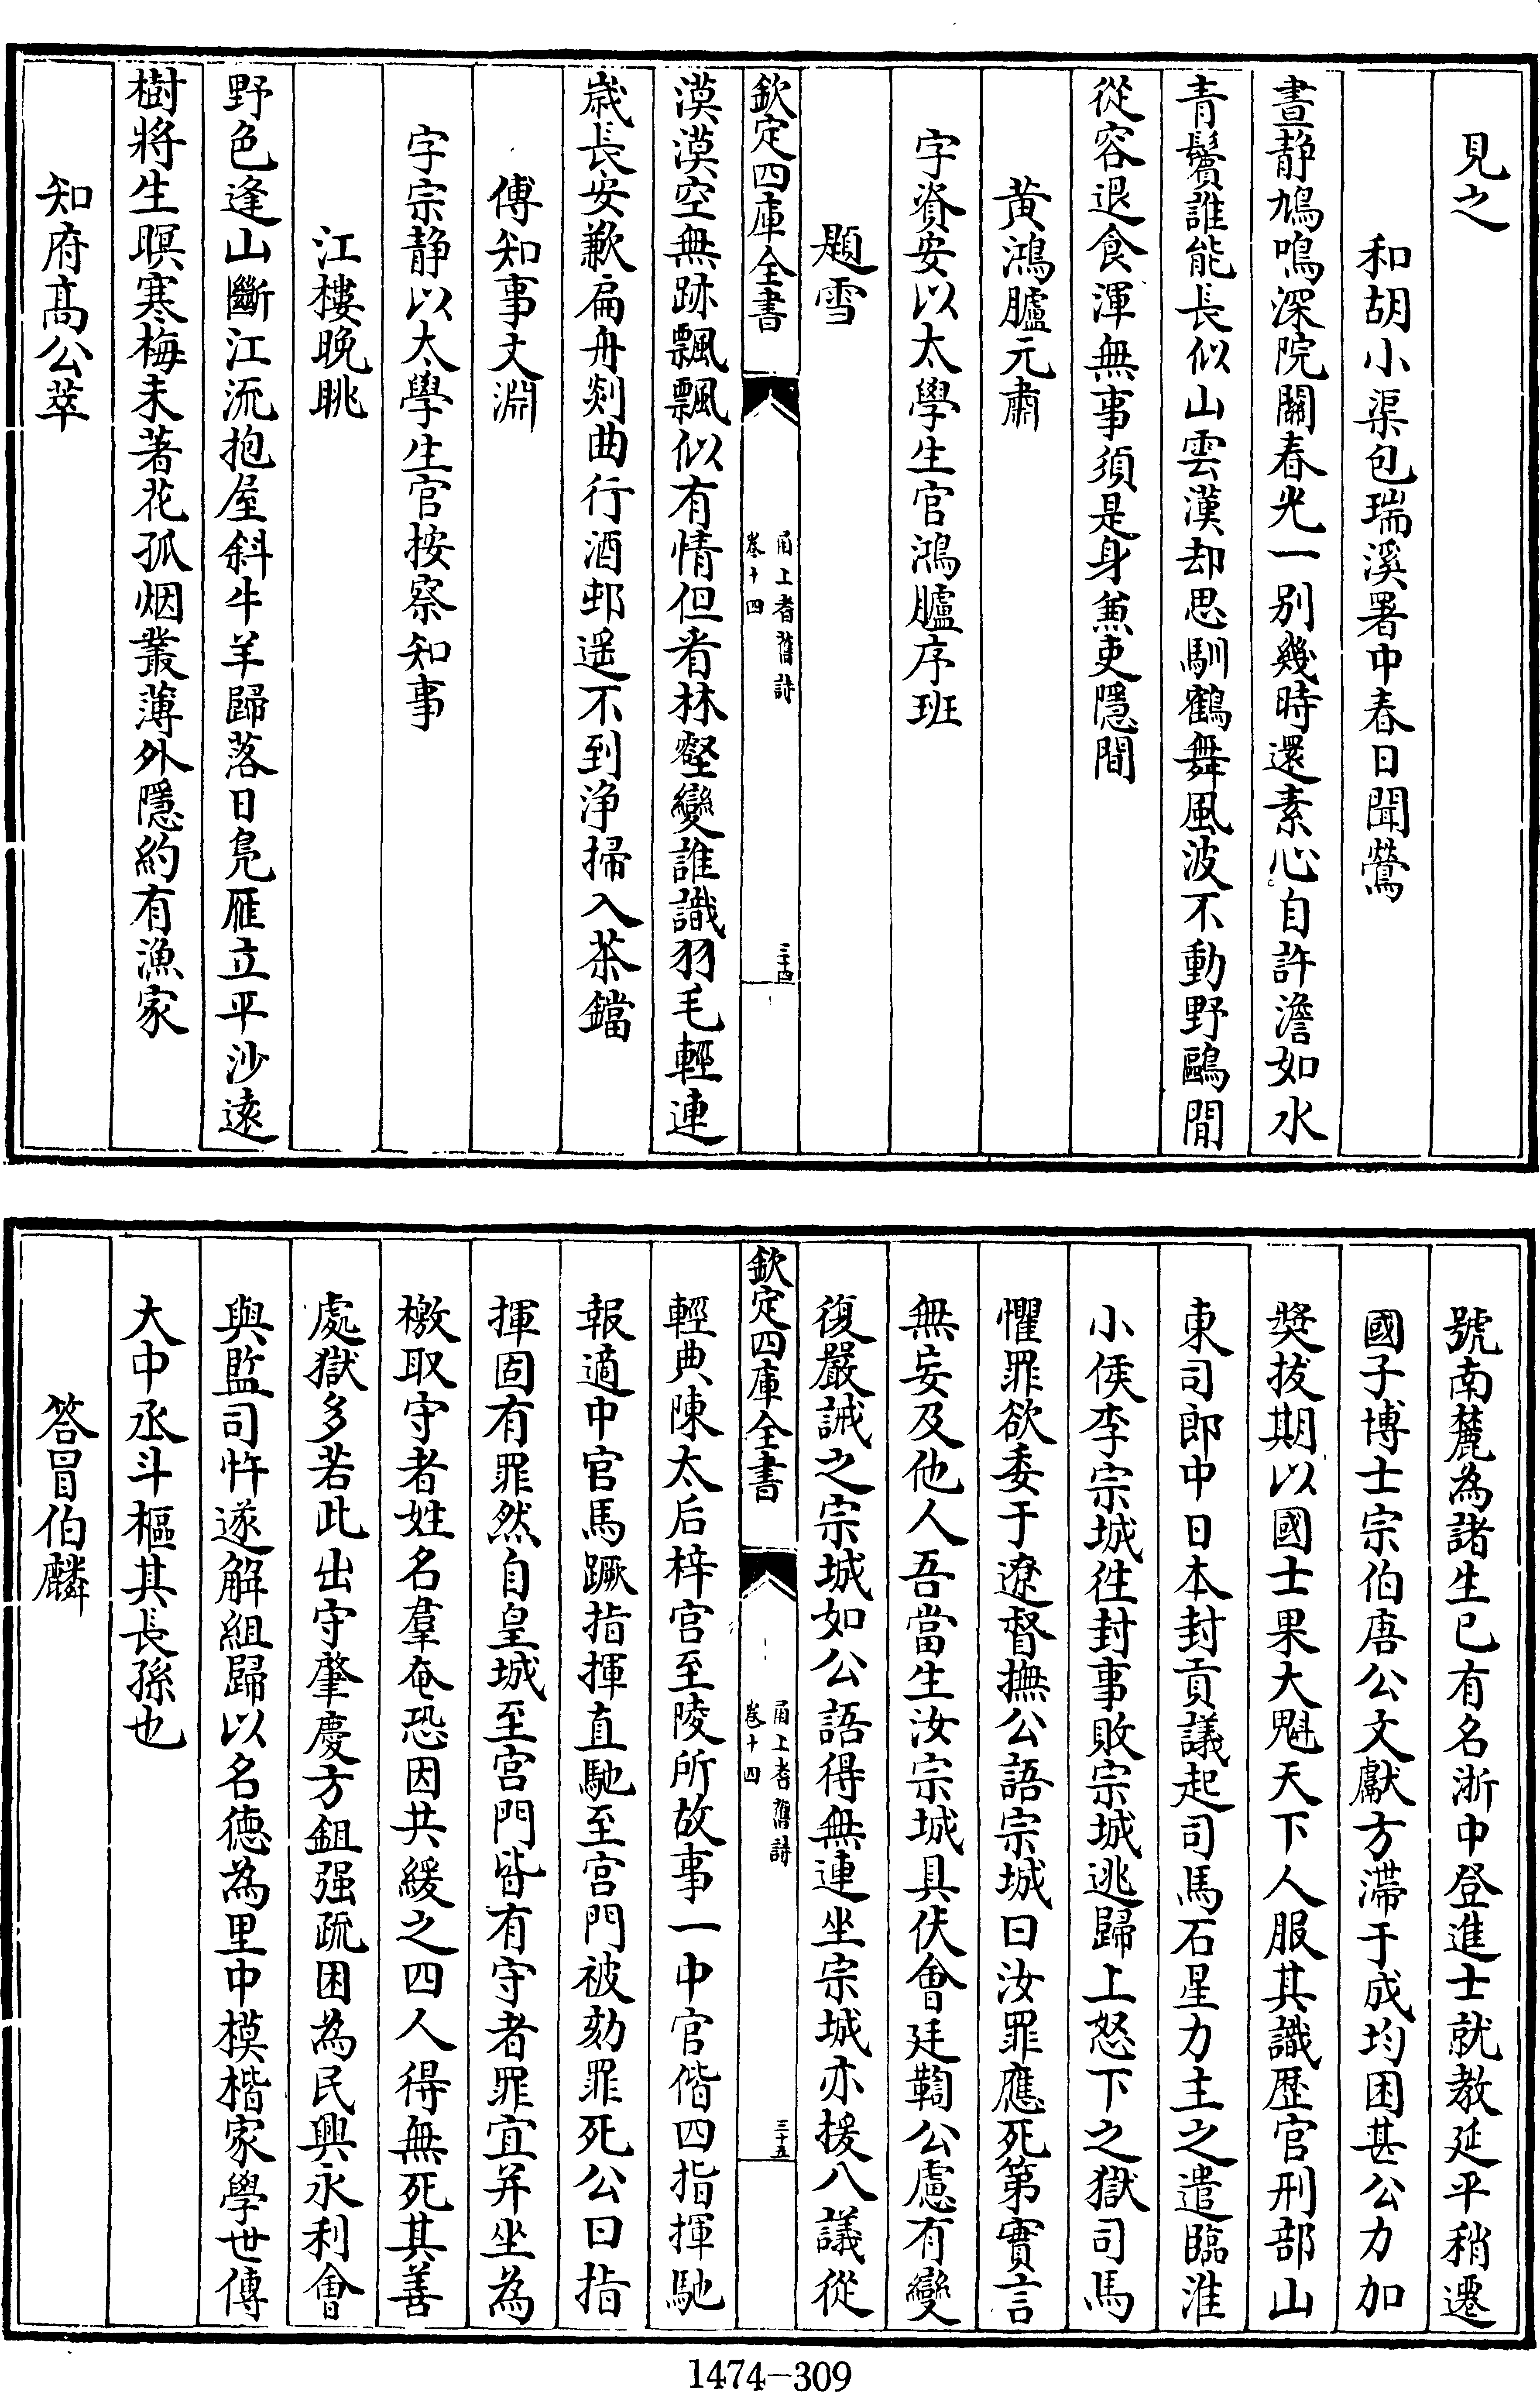 見之
和胡小渠包瑞溪署中春日聞鶯
晝静鳩鳴深院關春光一别幾時還素心自許澹如水
青鬢誰能長似山雲漢却思馴鶴舞風波不動野鷗閒
從容退食渾無事須是身兼吏隱間
黄鴻臚元肅
字資安以太學生官鴻臚序班
題雪
欽定四庫全書
甬上耆舊詩
卷十四
三十四
漠漠空無跡飄飄似有情但看林壑變誰識羽毛輕連
歲長安歉扁舟剡曲行酒邨遥不到浄掃入茶鐺
傅知事文淵
字宗静以太學生官按察知事
江樓晚眺
野色逢山斷江流抱屋斜牛羊歸落日鳧雁立平沙遠
樹將生暝寒梅未著花孤烟叢薄外隱約有漁家
知府髙公萃
號南麓為諸生已有名浙中登進士就教延平稍遷
國子博士宗伯唐公文獻方滯于成均困甚公力加
奬拔期以國士果大魁天下人服其識歴官刑部山
東司郎中日本封貢議起司馬石星力主之遣臨淮
小侯李宗城徃封事敗宗城逃歸上怒下之獄司馬
懼罪欲委于遼督撫公語宗城曰汝罪應死第實言
無妄及他人吾當生汝宗城具伏會廷鞫公慮有變
復嚴誡之宗城如公語得無連坐宗城亦援八議從
欽定四庫全書
甬上耆舊詩
卷十四
三十五
輕典陳太后梓宫至陵所故事一中官偕四指揮馳
報適中官馬蹶指揮直馳至宫門被劾罪死公曰指
揮固有罪然自皇城至宫門皆有守者罪宜并坐為
檄取守者姓名羣奄恐因共緩之四人得無死其善
處獄多若此出守肇慶方鉏强疏困為民興永利會
與監司忤遂解組歸以名徳為里中模楷家學世傳
大中丞斗樞其長孫也
答冒伯麟
1474-309